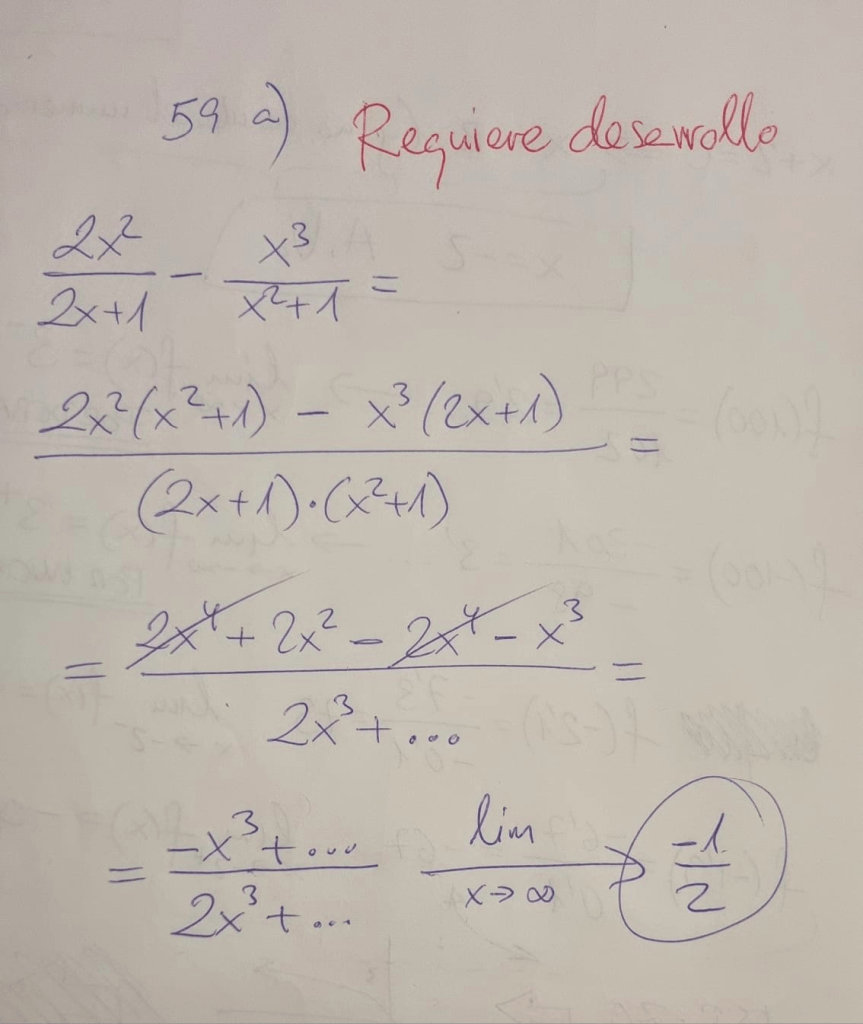 59 a) Requiere deserrollo
2x²/(2x+1) - x³/(x²+1) =
(2x²(x²+1) - x³(2x+1))/((2x+1)·(x²+1)) =
= (2x⁴ + 2x² - 2x⁴ - x³)/(2x³+...) =
= (-x³+...)/(2x³+...) lim x→∞ → -1/2